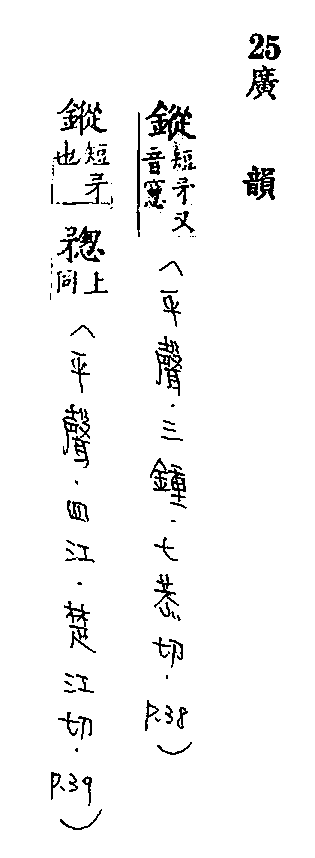 25廣韻
鏦短矛又音窻〈平聲.三鍾.七恭切.P.38〉
鏦短矛也 䂎上同〈平聲.四江.楚江切.P.39〉